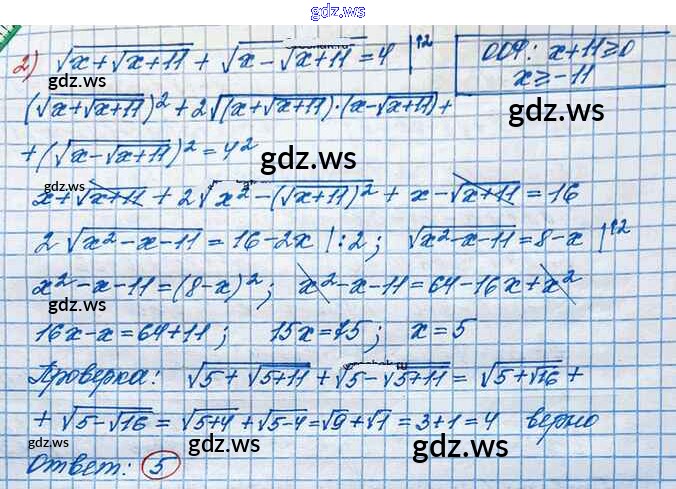 gdz.ws
2) √(x+√(x+11)) + √(x-√(x+11)) = 4 |↑2
ООУ: x+11≥0
x≥-11
gdz.ws
(√(x+√(x+11)))² + 2√((x+√(x+11))·(x-√(x+11))) +
gdz.ws
+ (√(x-√(x+11)))² = 4²
gdz.ws
gdz.ws
x+√(x+11) + 2√(x²-(√(x+11))²) + x-√(x+11) = 16
2√(x²-x-11) = 16-2x |:2; √(x²-x-11) = 8-x |↑2
gdz.ws
gdz.ws
x²-x-11=(8-x)²; x²-x-11=64-16x+x²
gdz.ws
16x-x=64+11; 15x=75; x=5
Проверка: √(5+√(5+11)) + √(5-√(5+11)) = √(5+√16) +
gdz.ws
+ √(5-√16) = √(5+4) + √(5-4) = √9+√1 = 3+1=4 верно
gdz.ws
gdz.ws
gdz.ws
Ответ: 5